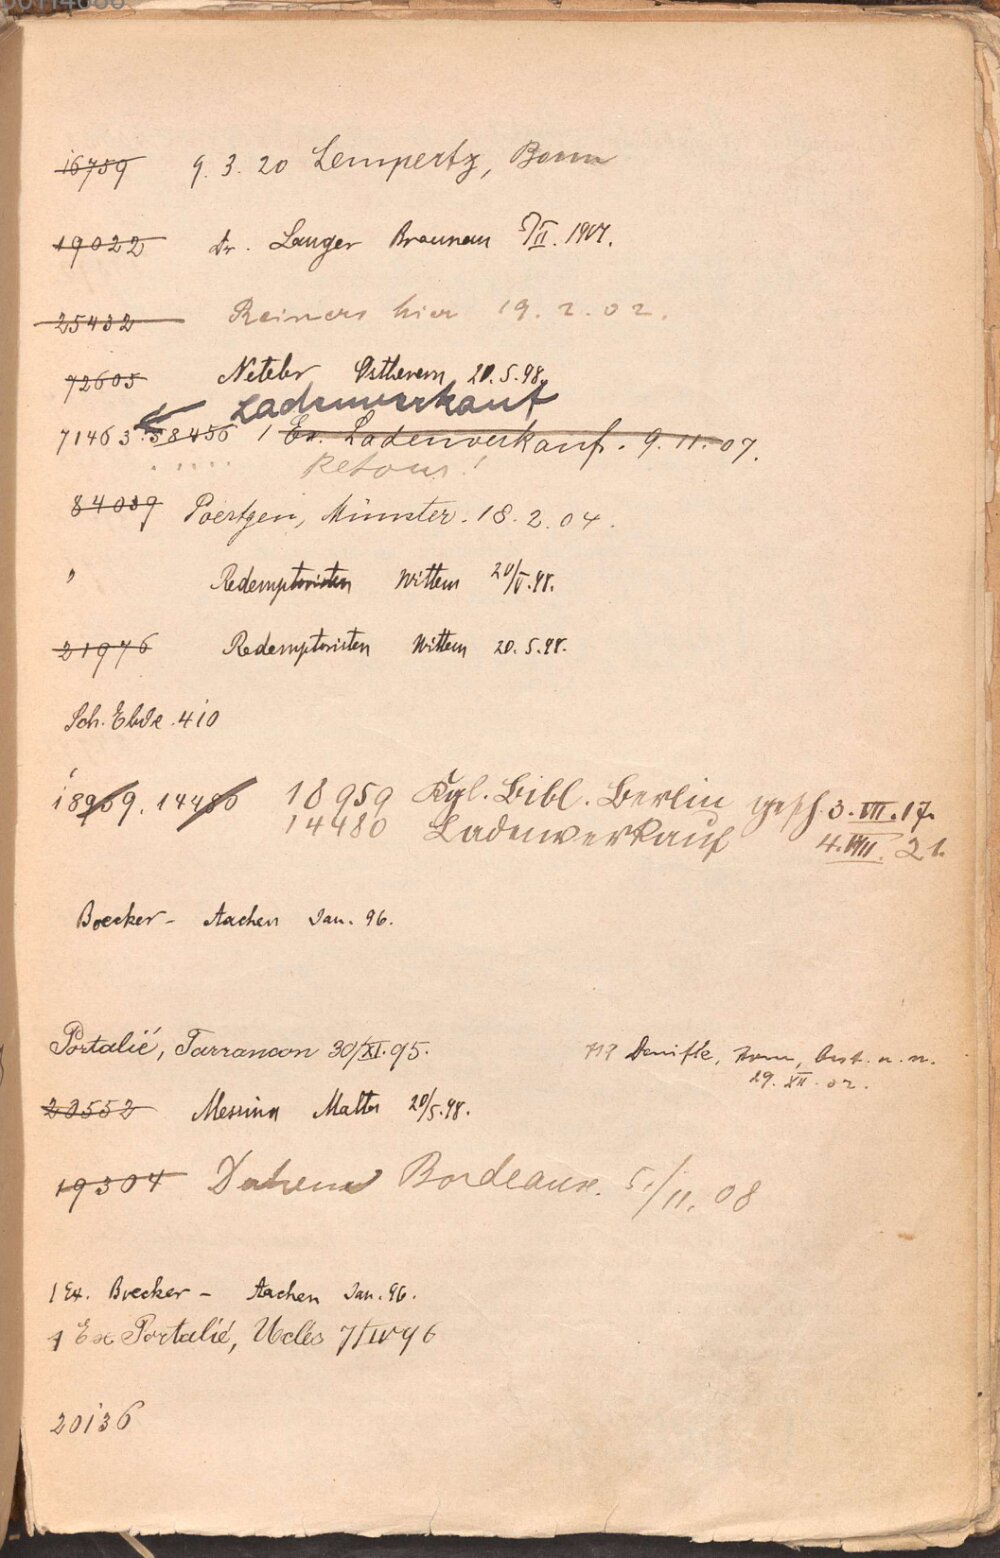 16759 9. 3. 20 Lempertz, Bonn
19022 Dr. Langer Braunau 5/II. 1907.
25432 Reiners hier 19. 2. 02.
72605 Neteler Ostbevern 20.5.98.
Ladenverkauf
71463. 58456 1 Ex. Ladenverkauf. 9. 11. 07.
Retour!
84039 Poertgen, Münster. 18. 2. 04.
" Redemptoristen Wittem 20/V.98.
21976 Redemptoristen Wittem 20. 5. 98.
Sch. Ebde. 410
18959. 14480 18959 Kgl. Bibl. Berlin gesch. 3. VII. 17.
14480 Ladenverkauf 4. VIII. 21.
Boecker - Aachen Jan. 96.
Portalié, Tarrancon 30/XI. 95.
Denifle, Rom, 29. XII. 02.
20552 Messina Malta 20/5. 98.
19304 Bordeaux. 5./11. 08
1 Ex. Boecker - Aachen Jan. 96.
1 Ex Portalié, Uclès 7/IV 96
20136